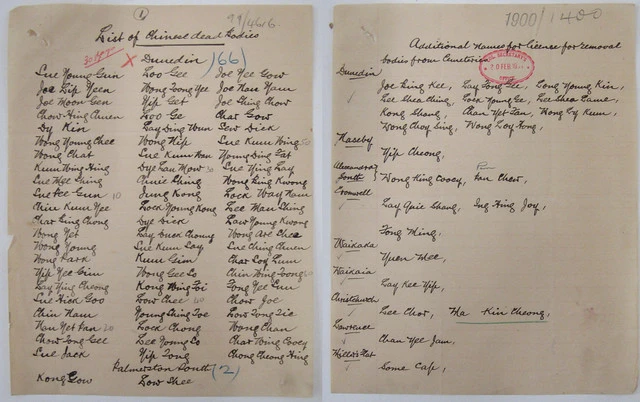 ①
99/466.
List of Chinese dead bodies
x Dunedin (66)
Sue Young Gun Loo Gee Joe Yee Gow
Joe Lip Yeen Wong Long Yee Joe Kan Yam
Joe Moon Gen Yip Get Joe Shing Chow
Chow Hing Chuen Loo Ge Char Gow
Dy Kin Lay Ding Voun Sew Dick
Wong Young Chee Wong Hip Sue Kum Wing
Wong Chat Sue Kum Wan Young Ding Gat
Kum Wing Hing Dye Lan Mow 30 Sue Ying Lay
Sue Mee Shing Amie Ching Wong Ling Kwong
Sue Fee Gun 10 Jung Kong Lock Way Nam
Chin Kum Yee Lock Young Kong Lee Man Ching
Char Ling Chong Dye Dick Law Young Kwong
Wong Yet Lay Buck Choung Wong Ave Chee
Wong Young Sue Kum Lay Sue Ching Chuen
Wong Park Kum Gim Char Loy Lum
Yip Yee Gim Wong Gee Lo Chin Wing Loong
Lay Ying Cheong Kong Wing Loi Long Yee Lun
Sue Kick Goo Low Chee 40 Chow Joe
Chin Nam Young Ching Joe Low Long Sie
Kan Yet Pan 20 Lock Chong Wong Chan
Chow Long Gee Lee Young Lo Char Wing Cooey
Sue Jack Yip Long Chong Cheong Hing
Palmerston South (2)
Kong Gow Low Shee
1000/1400
Additional names for license for removal
bodies from Cemeteries
Dunedin
Joe Ling Kee, Lay Long Lee, Long Young Kin,
Lee Shea Ching, Lock Young Ge, Lee Shea Came,
Kong Shang, Chan Yet Tan, Wong Ey Kum,
Wong Choy Sing, Wong Loy Fong,
Naseby
Yip Cheong,
Alexandra
South } Wong King Cooey, Pan Chew,
Cromwell
Lay Apie Shang, Ing Hing Joy,
Fong Ming,
Waikaka
Yuen Whee,
Waikaia
Lay Kee Yip,
Christchurch
Lee Chor, Ma Kin Cheong,
Lawrence
Chan Yee Jam,
Miller's Flat
Some Cap,